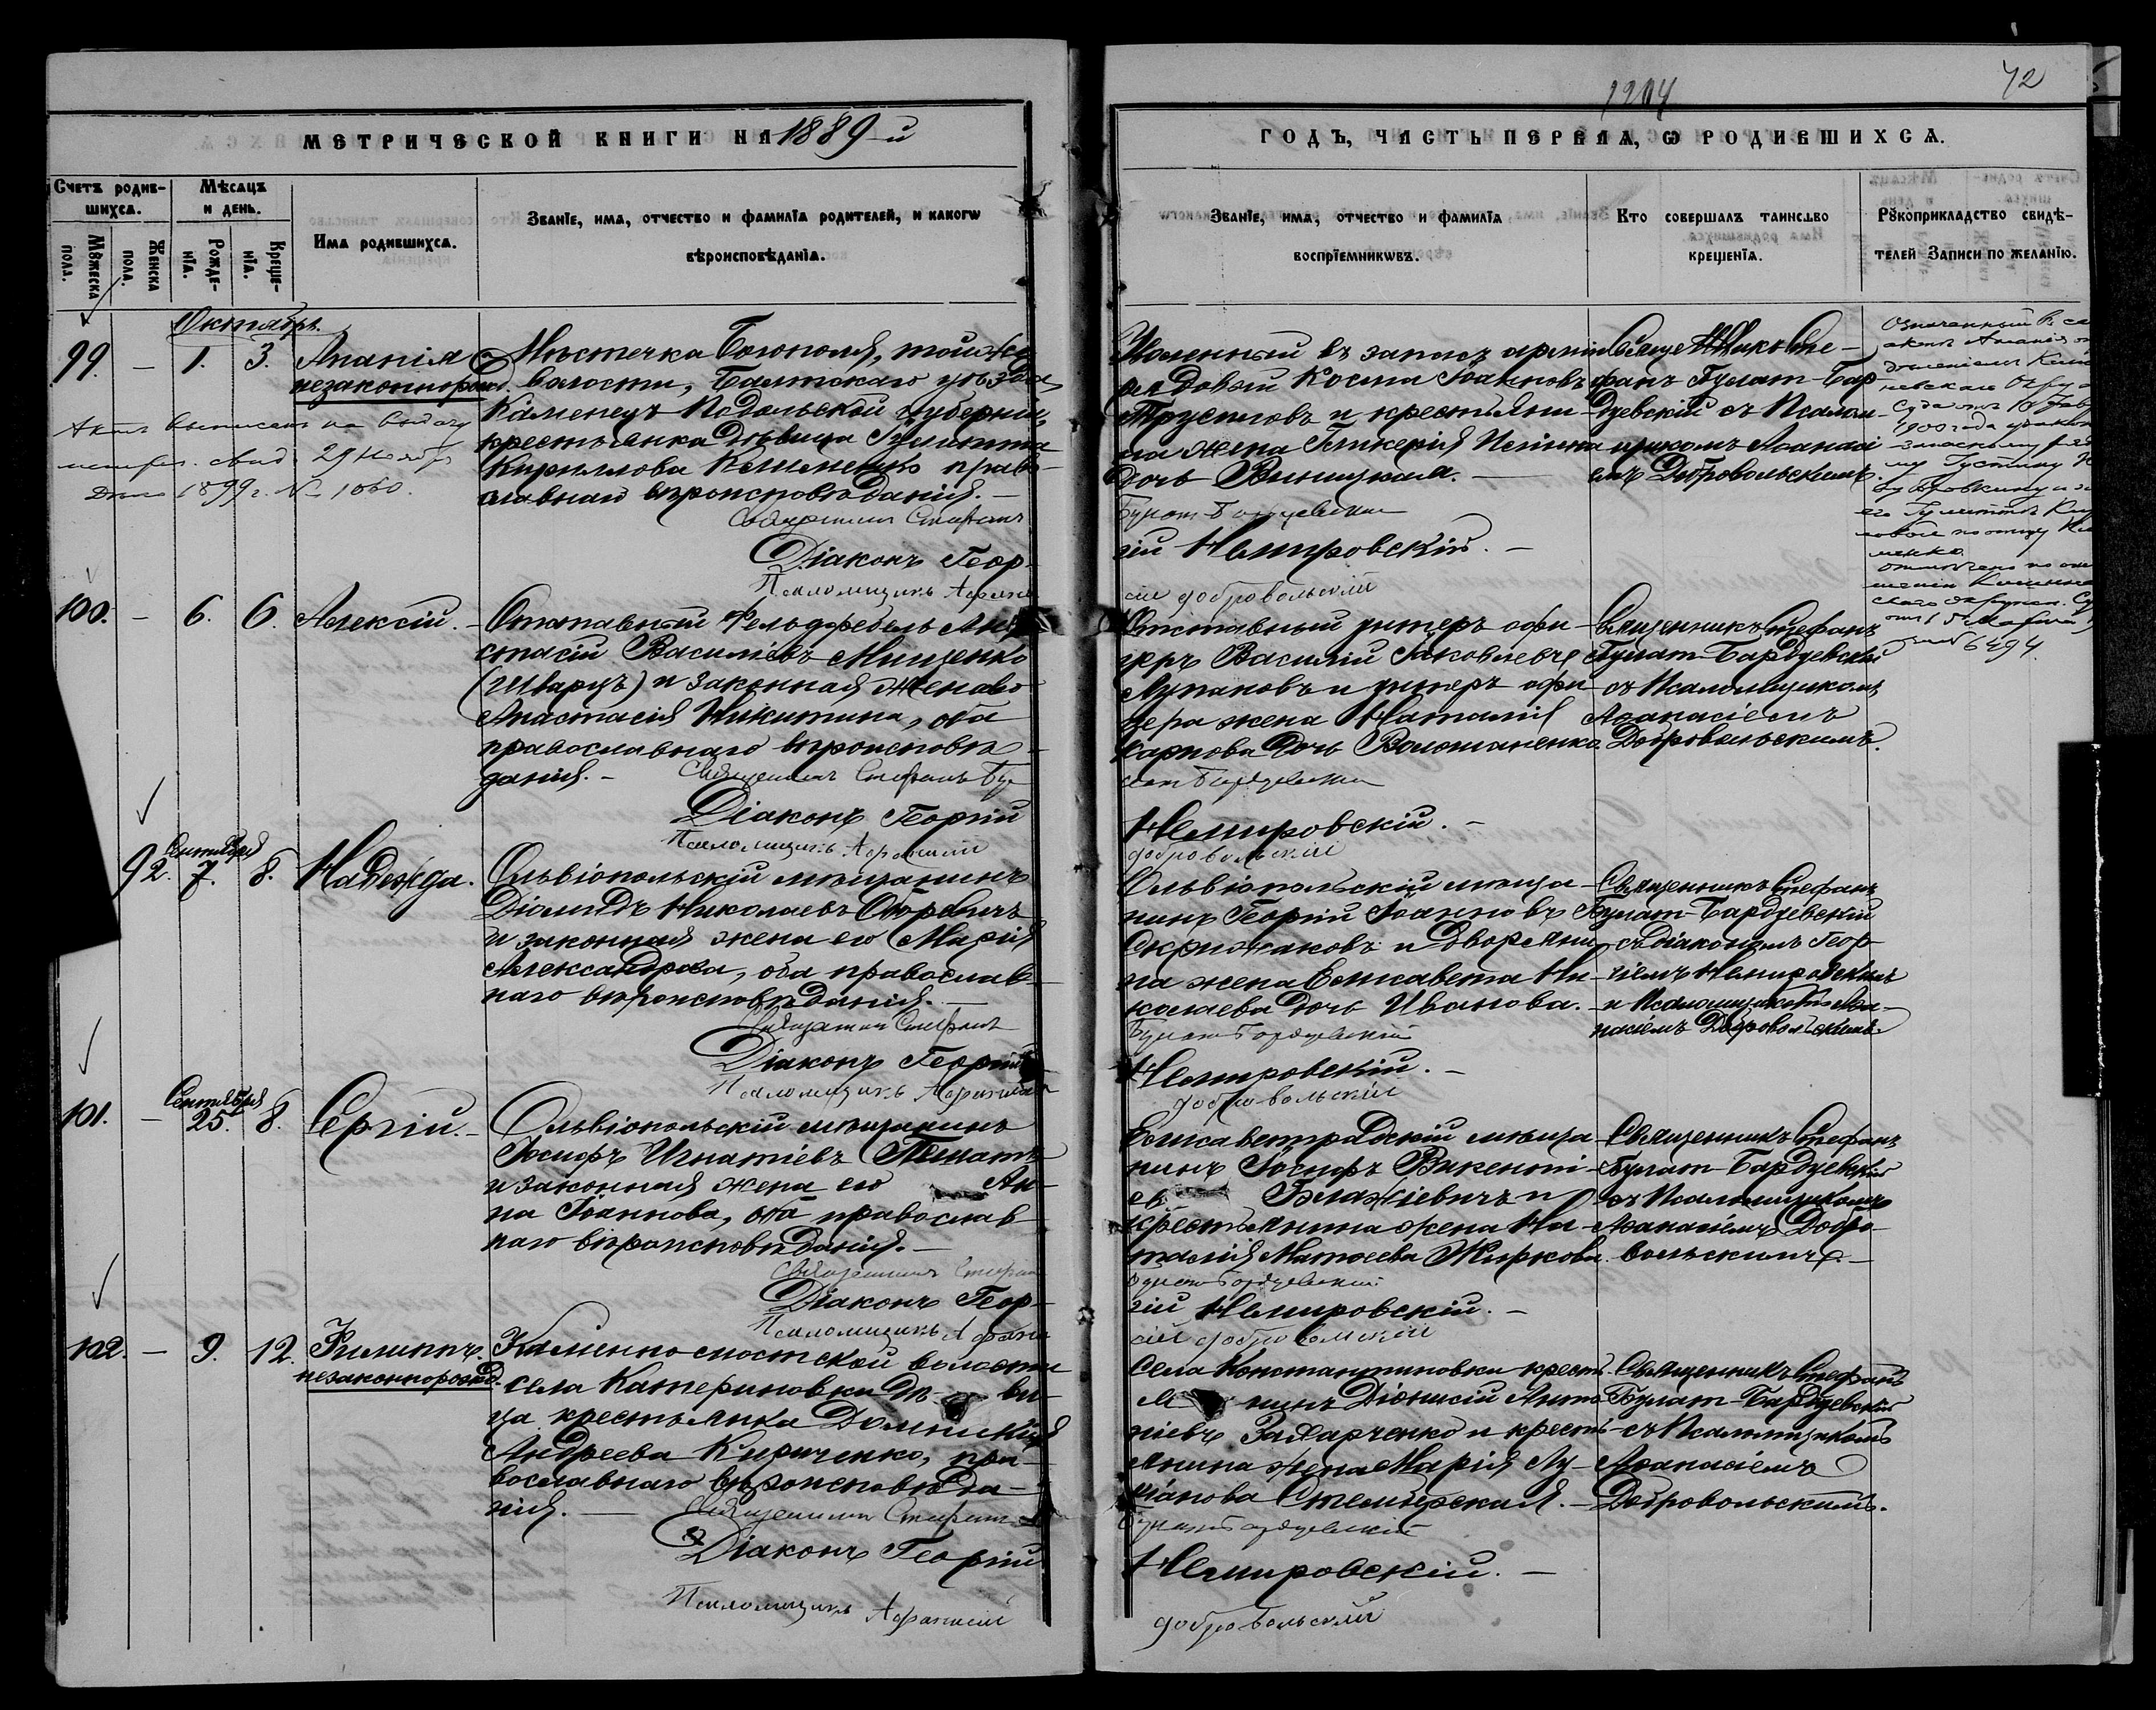 1904
72
МЕТРИЧЕСКОЙ КНИГИ НА 1889-й
ГОДЪ, ЧАСТЬ ПЕРВАЯ, Ѡ РОДИВШИХСѦ.
Счетъ родив-
шихсѧ.
Мѣсѧцъ
и день.
Мꙋжеска
пола.
Женска
пола.
Рожде-
нїѧ.
Креще-
нїѧ.
Имѧ родившихсѧ.
Званїе, имѧ, отчество и фамилїѧ родителей, и какогѡ
вѣроисповѣданїѧ.
Званїе, имѧ, отчество и фамилїѧ
воспрїемникѡвъ.
Кто совершалъ таинство
крещенїѧ.
Рꙋкоприкладство свидѣ-
телей Записи по желанїю.
Октябрь.
99. — 1. 3. Ананія
незаконнорожд.
Актъ выписанъ на выдачу
метрич. свид. 29 Ноября
1899 г. № 1060.
Мѣстечка Богополя, той же
волости, Балтскаго уѣзда
Каменецъ-Подольской губерніи,
крестьянка дѣвица Гулитта
Кириллова Клименко право-
славнаго вѣроисповѣданія. —
Священникъ Стефанъ
Діаконъ Геор-
Псаломщикъ Афана
Уволенный въ запасъ арміи
рядовой Косма Іоанновъ
Трусиловъ и крестьяни-
на жена Гликерія
дочь Виницкая. —
Булат-Бардуевскій
гій Немировскій. —
сій Добровольскій
Священникъ Сте-
фанъ Булат-Бар-
дуевскій съ Псалом-
щикомъ Аѳанасі-
емъ Добровольскимъ.
Означенный въ се
актѣ Ананія
Суда отъ 10
1900 года
6494
100. — 6. 6. Алексій. —
Отставный Фельдфебель Ана-
стасій Василіевъ Мищенко
(Шварцъ) и законная жена его
Анастасія Никитина, оба
православнаго вѣроисповѣ-
данія. — Священникъ Стефанъ Бу
Діаконъ Георгій
Псаломщикъ Афанасій
Отставный унтеръ офи-
церъ Василій Іаковлевъ
Лупановъ и унтеръ офи-
цера жена Наталія
Карпова дочь Волошаненко.
лат-Бардуевскій
Немировскій. —
Добровольскій
Священникъ Стефанъ
Булат-Бардуевскій
съ Псаломщикомъ
Аѳанасіемъ
Добровольскимъ.
Сентября
92. 7. 8. Надежда.
Ольвіопольскій мѣщанинъ
Діомидъ Николаевъ
и законная жена его Марія
Александрова, оба православ-
наго вѣроисповѣданія. —
Священникъ Стефанъ
Діаконъ Георгій
Псаломщикъ Афанасій
Ольвіопольскій мѣща-
нинъ Георгій Іоанновъ
Скрижаковъ и дворяни-
на жена Елисавета Ни-
колаева дочь Иванова. —
Булат-Бардуевскій
Немировскій. —
Добровольскій
Священникъ Стефанъ
Булат-Бардуевскій
съ діакономъ Геор-
гіемъ Немировскимъ
и Псаломщикомъ Аѳа-
насіемъ Добровольскимъ.
Сентября
101. — 25. 8. Сергій. —
Ольвіопольскій мѣщанинъ
Іосифъ Игнатіевъ
и законная жена его Ан-
на Іоаннова, оба православ-
наго вѣроисповѣданія. —
Священникъ Стефанъ
Діаконъ Геор-
Псаломщикъ Афана
Елисаветградскій мѣща-
нинъ Іосифъ Викенті-
евъ Блажіевичъ и
крестьянина жена На-
талія Матѳеева Жиркова.
Булат-Бардуевскій
гій Немировскій. —
сій Добровольскій
Священникъ Стефанъ
Булат-Бардуевскій
съ Псаломщикомъ
Аѳанасіемъ Добро-
вольскимъ. —
102. — 9. 12. Филиппъ.
незаконнорожд.
Каменно мостской волости
села Катериновки дѣви-
ца крестьянка Домникія
Андреева Кириченко, пра-
вославнаго вѣроисповѣда-
нія. — Священникъ Стефанъ
Діаконъ Георгій
Псаломщикъ Афанасій
Села Константиновки кресть-
янинъ Діонисій Анто-
ніевъ Захарченко и кресть-
янина жена Марія Лу-
кіанова —
Булат-Бардуевскій
Немировскій. —
Добровольскій
Священникъ Стефанъ
Булат-Бардуевскій
съ Псаломщикомъ
Аѳанасіемъ
Добровольскимъ.